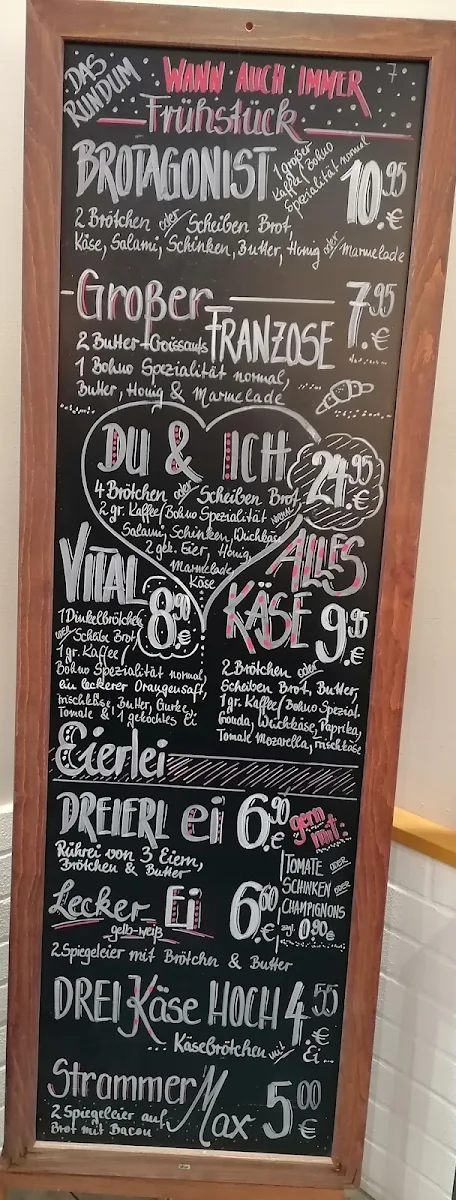 DAS RUNDUM
WANN AUCH IMMER
Frühstück
BROTAGONIST
1 großer
Kaffee/Bohno
Spezialität normal
10.95 €
2 Brötchen oder Scheiben Brot,
Käse, Salami, Schinken, Butter, Honig oder Marmelade
Großer
FRANZOSE
7.95 €
2 Butter-Croissants
1 Bohno Spezialität normal,
Butter, Honig & Marmelade
DU & ICH
24.95 €
4 Brötchen oder Scheiben Brot
2 gr. Kaffee/Bohno Spezialität normal
Salami, Schinken, Weichkäse
2 gek. Eier, Honig,
Marmelade,
Käse
VITAL
8.90 €
1 Dinkelbrötchen
oder Scheibe Brot,
1 gr. Kaffee/
Bohno Spezialität normal,
ein leckerer Orangensaft,
Frischkäse, Butter, Gurke,
Tomate & 1 gekochtes Ei
ALLES
KÄSE
9.95 €
2 Brötchen oder
Scheiben Brot, Butter,
1 gr. Kaffee/Bohno Spezial.
Gouda, Weichkäse, Paprika,
Tomate Mozarella, Frischkäse
Eierlei
DREIERL ei
6.90 €
Rührei von 3 Eiern,
Brötchen & Butter
gern
mit:
TOMATE ODER
SCHINKEN ODER
CHAMPIGNONS
zzgl. 0.90 €
Lecker Ei
gelb-weiß
6.00 €
2 Spiegeleier mit Brötchen & Butter
DREI Käse HOCH
4.55 €
... Käsebrötchen mit Ei...
Strammer Max
5.00 €
2 Spiegeleier auf
Brot mit Bacon